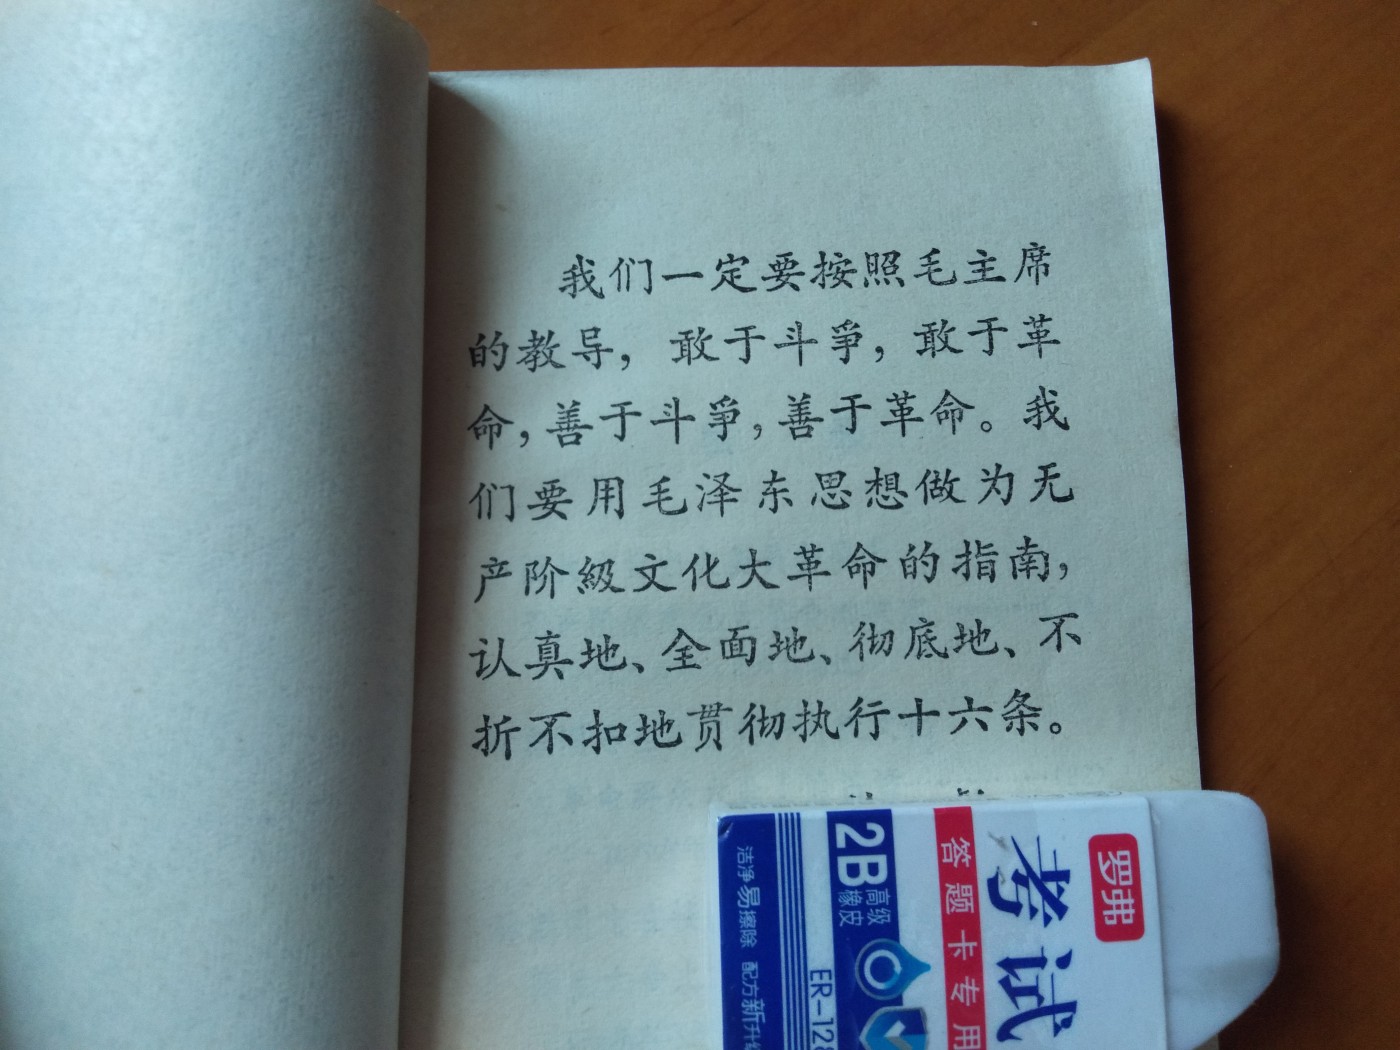 我们一定要按照毛主席
的教导，敢于斗爭，敢于革
命，善于斗爭，善于革命。我
们要用毛泽东思想做为无
产阶級文化大革命的指南，
认真地、全面地、彻底地、不
折不扣地贯彻执行十六条。
罗弗
考试
答题卡专用
2B
高级
橡皮
ER-128
洁净易擦除 配方新升级